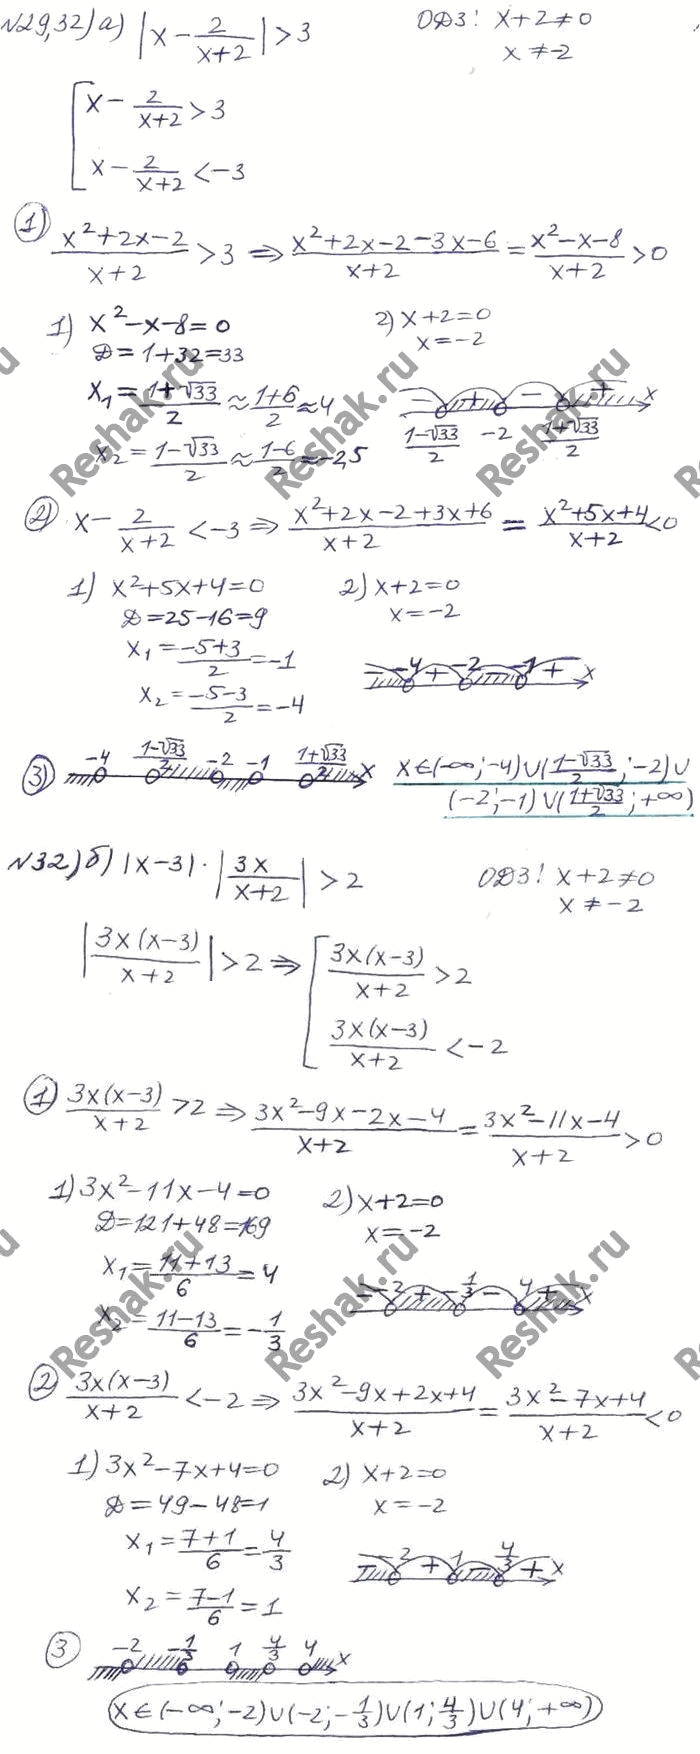 №29,32) а) |x - 2/(x+2)| > 3 ОДЗ! x+2≠0
x ≠ -2
[x - 2/(x+2) > 3
x - 2/(x+2) < -3
1) (x²+2x-2)/(x+2) > 3 ⇒ (x²+2x-2-3x-6)/(x+2) = (x²-x-8)/(x+2) > 0
1) x²-x-8=0 2) x+2=0
Д=1+32=33 x=-2
x₁=(1+√33)/2 ≈ (1+6)/2 ≈ 4 - + - + x
x₂=(1-√33)/2 ≈ (1-6)/2 = -2,5 (1-√33)/2 -2 (1+√33)/2
2) x - 2/(x+2) < -3 ⇒ (x²+2x-2+3x+6)/(x+2) = (x²+5x+4)/(x+2) < 0
1) x²+5x+4=0 2) x+2=0
Д=25-16=9 x=-2
x₁=(-5+3)/2=-1 - -4 + -2 - -1 + x
x₂=(-5-3)/2=-4
3) -4 (1-√33)/2 -2 -1 (1+√33)/2 x x∈(-∞;-4)∪((1-√33)/2;-2)∪
(-2;-1)∪((1+√33)/2;+∞)
№32) б) |x-3|·|3x/(x+2)| > 2 ОДЗ! x+2≠0
x ≠ -2
|3x(x-3)/(x+2)| > 2 ⇒ [3x(x-3)/(x+2) > 2
3x(x-3)/(x+2) < -2
1) 3x(x-3)/(x+2) > 2 ⇒ (3x²-9x-2x-4)/(x+2) = (3x²-11x-4)/(x+2) > 0
1) 3x²-11x-4=0 2) x+2=0
Д=121+48=169 x=-2
x₁=(11+13)/6=4 - -2 + -1/3 - 4 + x
x₂=(11-13)/6=-1/3
2) 3x(x-3)/(x+2) < -2 ⇒ (3x²-9x+2x+4)/(x+2) = (3x²-7x+4)/(x+2) < 0
1) 3x²-7x+4=0 2) x+2=0
Д=49-48=1 x=-2
x₁=(7+1)/6=4/3 - -2 + 1 - 4/3 + x
x₂=(7-1)/6=1
3 -2 -1/3 1 4/3 4 x
x∈(-∞;-2)∪(-2;-1/3)∪(1;4/3)∪(4;+∞)
Reshak.ru
Reshak.ru
Reshak.ru
Reshak.ru
Reshak.ru
Reshak.ru